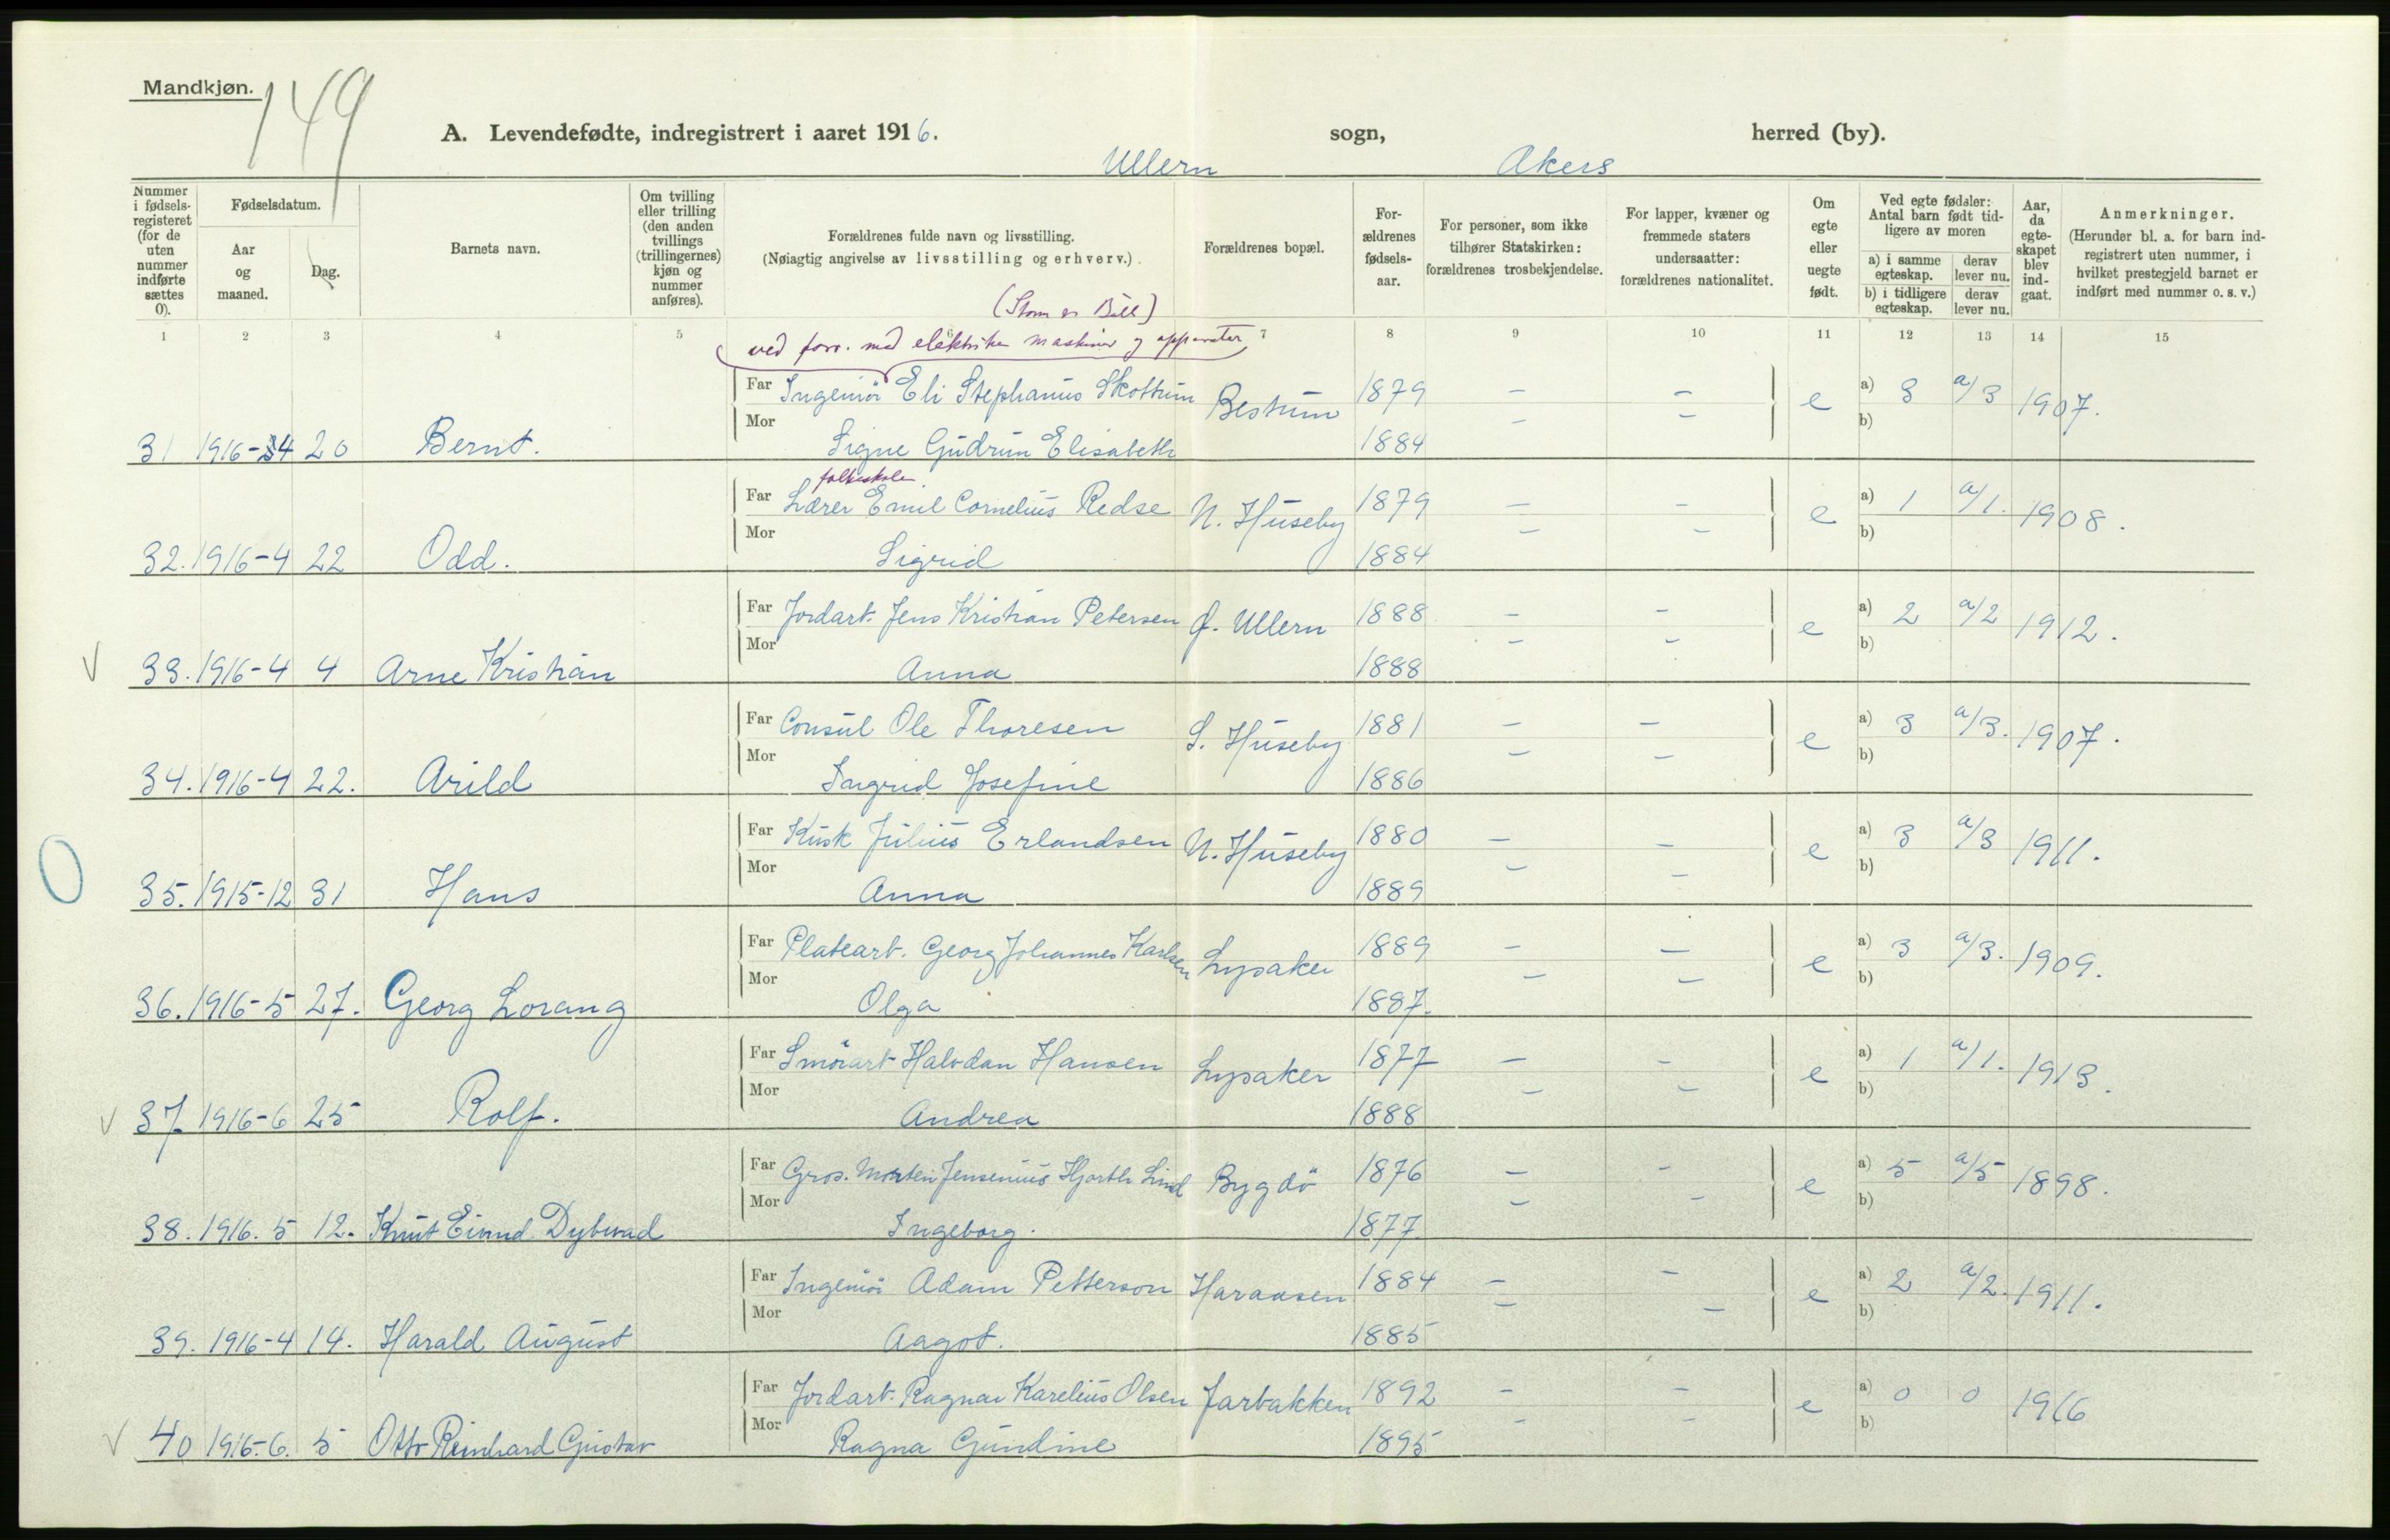 Mandkjøn.
149
A. Levendefødte, indregistrert i aaret 1916.
Ullern sogn, Akers herred (by).
Nummer i fødsels-registeret (for de uten nummer indførte sættes 0).
Fødselsdatum.
Aar og maaned.
Dag.
Barnets navn.
Om tvilling eller trilling (den anden tvillings (trillingernes) kjøn og nummer anføres).
Forældrenes fulde navn og livsstilling.
(Nøiagtig angivelse av livsstilling og erhverv.)
Forældrenes bopæl.
For-ældrenes fødsels-aar.
For personer, som ikke tilhører Statskirken: forældrenes trosbekjendelse.
For lapper, kvæner og fremmede staters undersaatter: forældrenes nationalitet.
Om egte eller uegte født.
Ved egte fødsler: Antal barn født tid-ligere av moren
a) i samme egteskap. derav lever nu.
b) i tidligere egteskap. derav lever nu.
Aar, da egte-skapet blev ind-gaat.
Anmerkninger.
(Herunder bl. a. for barn ind-registrert uten nummer, i hvilket prestegjeld barnet er indført med nummer o. s. v.)
1 2 3 4 5 6 7 8 9 10 11 12 13 14 15
ved forr. med elektriske maskiner og apparater
Far Ingeniör Eli Stephanus Skottum Bestum 1879 — — e a) 3 a/3 1907.
Mor b)
31 1916-4 20 Bernt. Signe Gudrun Elisabeth 1884
folkeskolen
Far Lærer Emil Cornelius Redse N. Huseby 1879 — — e a) 1 a/1. 1908.
Mor b)
32. 1916-4 22 Odd. Sigrid 1884
Far Jordarb. Jens Kristian Petersen Ø. Ullern 1888 — — e a) 2 a/2 1912.
Mor b)
V 33. 1916-4 4 Arne Kristian Anna 1888
Far Consul Ole Thoresen S. Huseby 1881 — — e a) 3 a/3. 1907.
Mor b)
34. 1916-4 22. Arild Ingrid Josefine 1886
Far Kusk Julius Erlandsen N. Huseby 1880 — — e a) 3 a/3 1911.
Mor b)
0 35. 1915-12 31 Hans Anna 1889
Far Platearb. Georg Johannes Karlsen Lysaker 1889 — — e a) 3 a/3. 1909.
Mor b)
36. 1916-5 27. Georg Lorang Olga 1887.
Far Smörarb Halvdan Hansen Lysaker 1877 — — e a) 1 a/1. 1913.
Mor b)
V 37 1916-6 25 Rolf. Andrea 1888
Far Gros. Morten Jensenius Hjorth Lind Bygdö 1876 — — e a) 5 a/5 1898.
Mor b)
38. 1916. 5 12. Knut Eivind Dybwad Ingeborg. 1877
Far Ingeniör Adam Petterson 1884 — — e a) 2 a/2. 1911.
Mor b)
39. 1916-4 14. Harald August Aagot. 1885
Far Jordarb. Ragnar Karelius Olsen Jarbakken 1892 — — e a) 0 0 1916
Mor b)
V 40 1916-6. 5 Otto Reinhard Gustav Ragna Gundine 1895